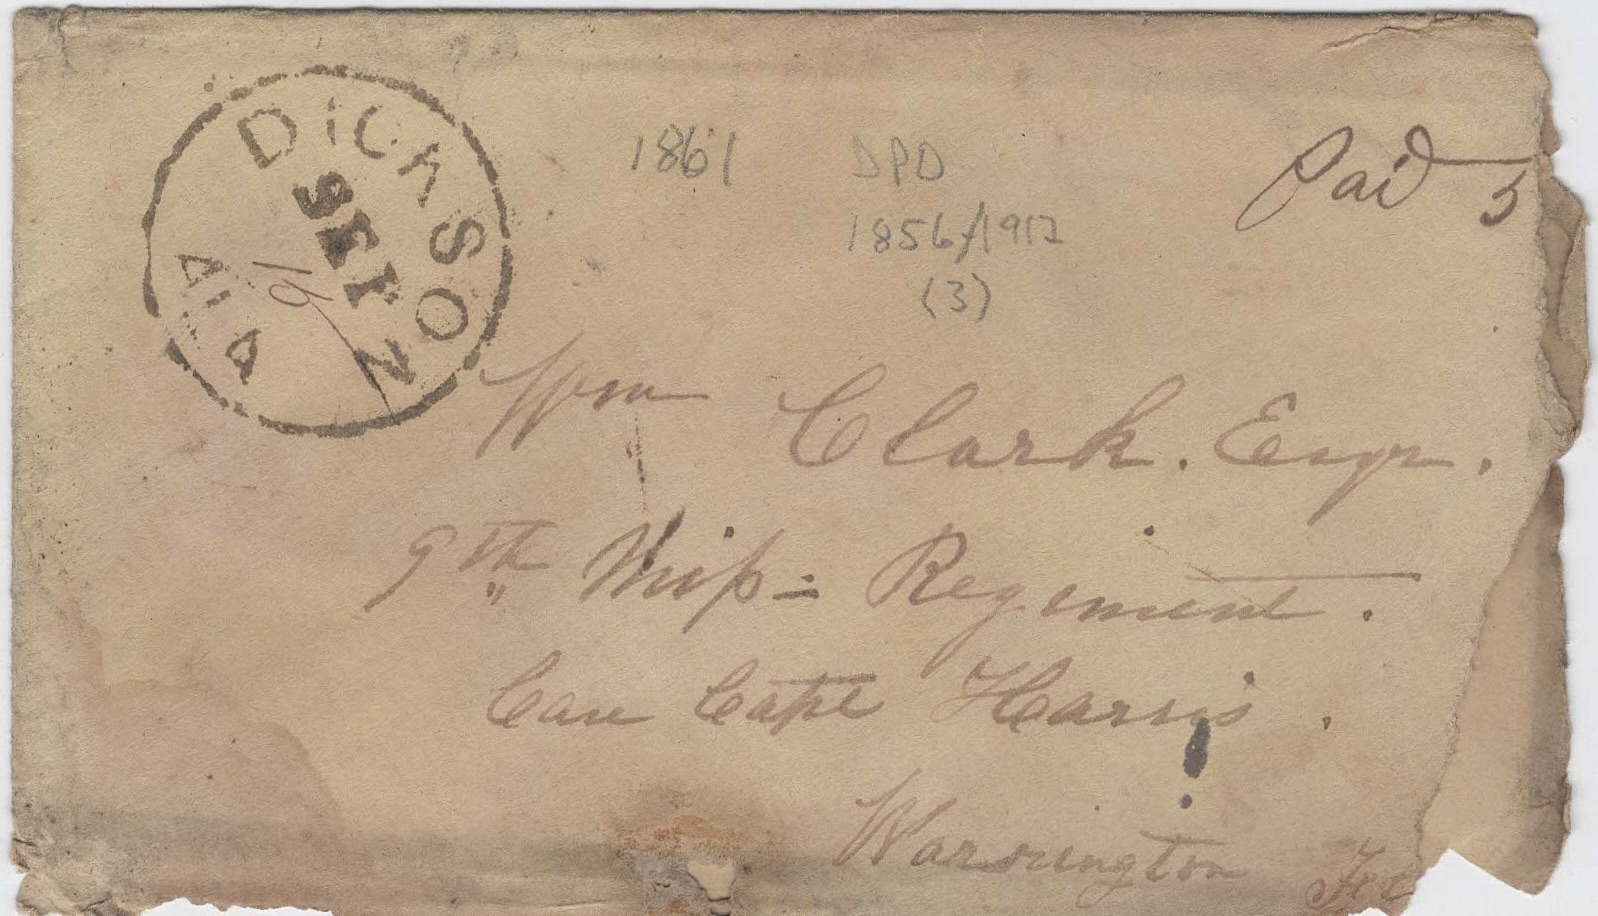 DICKSON
ALA
SEP
1
19
1861
DPO
1856/1917
(3)
Paid 5
Wm Clark. Esqr.
9th Miſs= Regiment.
Care Capt Harris.
Warrington